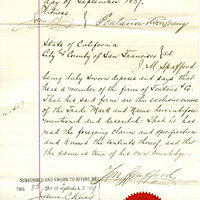 day of September 1887.
Witness
Fontana & Company
State of California
City & County of San Francisco } ss
J. M. Spafford
being duly sworn deposes and says that
he is a member of the firm of Fontana & Co.
That his said firm are the
of the Trade Mark and Name herein before
mentioned and described. That he has
read the foregoing claim and specification
and knows the contents thereof, and that
the same is true of his own knowledge.
SUBSCRIBED AND SWORN TO BEFORE ME
THIS 8th DAY OF A.D. 1887
J M Spafford